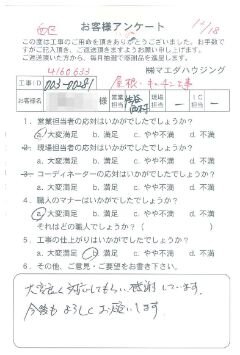 お客様アンケート 12/18
この度は工事のご用命を頂きありがとうございました。お手数で
すがご記入頂き、ご返送頂きますようお願い申し上げます。
ご返送頂いた方から、毎月抽選で感謝品を進呈します。
4160633 ㈱マエダハウジング
工事ID 003-00281 屋根・キッチン工事
お客様名 様 営業担当 現場担当 ー IC担当 ー
1. 営業担当者の応対はいかがでしたでしょうか?
a. 大変満足 b. 満足 c. やや不満 d. 不満
2. 現場担当者の応対はいかがでしたでしょうか?
a. 大変満足 b. 満足 c. やや不満 d. 不満
3. コーディネーターの応対はいかがでしたでしょうか?
a. 大変満足 b. 満足 c. やや不満 d. 不満
4. 職人のマナーはいかがでしたでしょうか?
a. 大変満足 b. 満足 c. やや不満 d. 不満
それはどの職人でしょうか?( )
5. 工事の仕上がりはいかがでしたでしょうか?
a. 大変満足 b. 満足 c. やや不満 d. 不満
6. その他、ご意見・ご要望をお書き下さい。
大変良く対応してもらい感謝しています。
今後もよろしくお願いします。